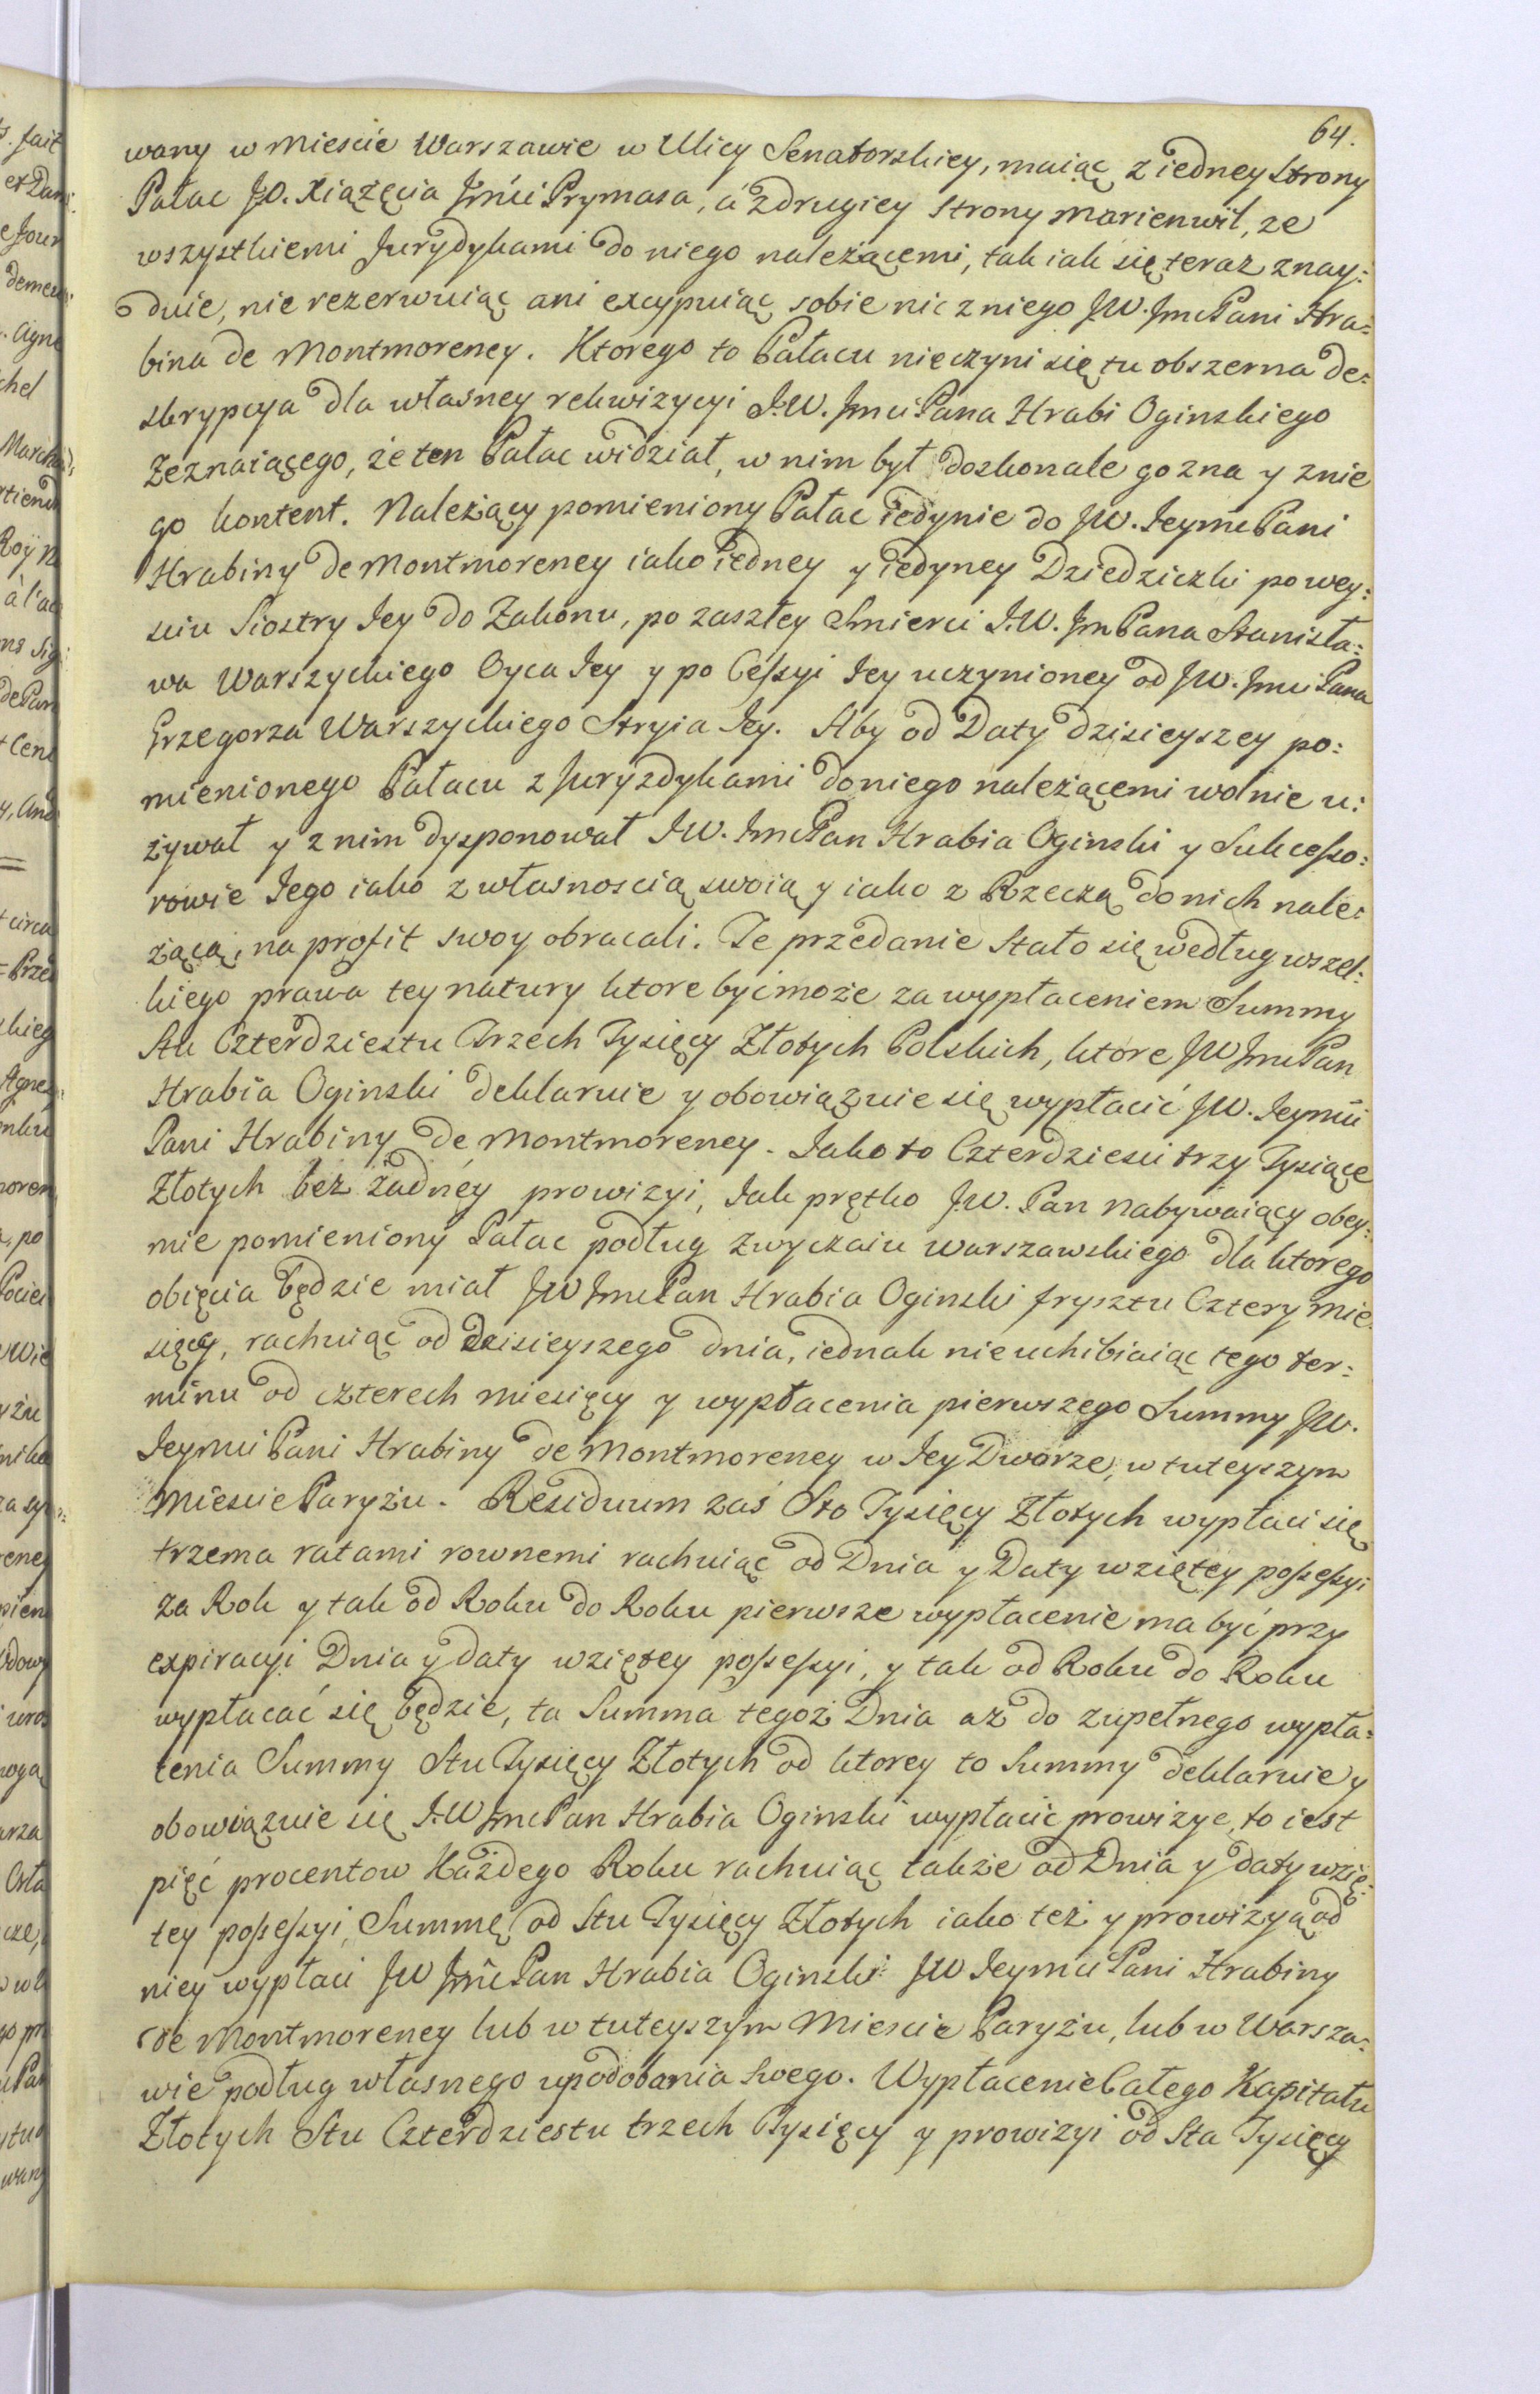 64.
wany w Miescie Warszawie w Ulicy Senatorskiey, maiąc z iedney Strony
Pałac JO. Xiążęcia Jmći Prymasa, á z drugiey strony Marienwil, ze
wszystkiemi Jurydykami do niego należącemi, tak iak się teraz znay:
duie, nie rezerwuiąc ani excypuiąc sobie nic z niego JW. Jmć Pani Hra:
bina de Montmorency. Ktorego to Pałacu nieczyni się tu obszerna de:
skrypcya dla własney rekwizycyi J.W. Jmći Pana Hrabi Oginskiego
Zeznaiącego, że ten Pałac widział, w nim był doskonale go zna y znie
go kontent. Należący pomieniony Pałac iedynie do JW. Jeymć Pani
Hrabiny de Montmorency iako iedney y iedyney Dziedziczki po wey:
sciu Siostry Jey do Zakonu, po zaszłey Smierci J.W. Jm Pana Stanisła:
wa Warszyckiego Oyca Jey y po Cessyi Jey uczynioney od JW. Jmći Pana
Grzegorza Warszyckiego Stryia Jey. Aby od Daty dzisieyszey po:
mienionego Pałacu z Juryzdykami do niego należącemi wolnie u:
żywał y z nim dysponował J.W. Jmć Pan Hrabia Oginski y Sukcesso:
rowie Jego iako z własnoscią swoią y iako z Rzeczą do nich nale:
żącą, na profit swoy obracali. Te przedanie Stało się według wszel:
kiego prawa tey natury ktore być może za wypłaceniem Summy
Stu Czterdziestu Trzech Tysięcy Złotych Polskich, ktore JW Jmć Pan
Hrabia Oginski deklaruie y obowiązuie się wypłacić JW. Jeymći
Pani Hrabiny de Montmorency. Jako to Czterdziesci trzy Tysiące
Złotych bez żadney prowizyi, Jak prętko JW. Pan Nabywaiący obey:
mie pomieniony Pałac podług zwyczaiu warszawskiego dla ktorego
obięcia będzie miał JW Jmć Pan Hrabia Oginski frysztu Cztery mie:
sięcy, rachuiąc od dzisieyszego dnia, iednak nie uchibiaiąc tego ter:
minu od czterech miesięcy y wypłacenia pierwszego Summy JW.
Jeymći Pani Hrabiny de Montmorency w Jey Dworze, w tuteyszym
Miescie Paryżu. Residuum zaś Sto Tysięcy Złotych wypłaci się
trzema ratami rownemi rachuiąc od Dnia y Daty wziętey possessyi
za Rok y tak od Roku do Roku pierwsze wypłacenie ma być przy
expiracyi Dnia y daty wziętey possessyi, y tak od Roku do Roku
wypłacać się będzie, ta Summa tegoż Dnia aż do zupełnego wypła:
cenia Summy Stu Tysięcy Złotych od ktorey to Summy deklaruie y
obowiązuie się J.W Jmć Pan Hrabia Oginski wypłacić prowizye, to iest
pięć procentow Każdego Roku rachuiąc także od Dnia y daty wzię:
tey possessyi, Summę od Stu Tysięcy Złotych iako też y prowizyą od
niey wypłaci JW Jmć Pan Hrabia Oginski JW Jeymći Pani Hrabiny
de Montmorency lub w tuteyszym Miescie Paryżu, lub w Warsza:
wie podług własnego upodobania swego. Wypłacenie Całego Kapitału
Złotych Stu Czterdziestu trzech Tysięcy y prowizyi od Sta Tysięcy